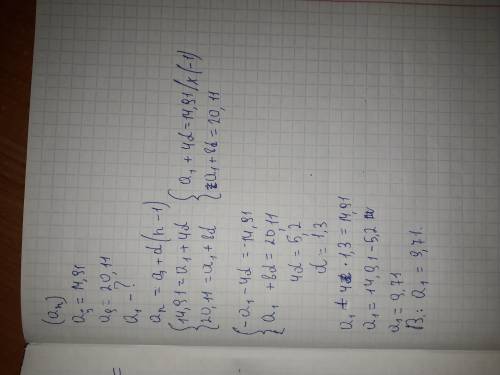 (aₙ)
a₅ = 14,91
a₉ = 20,11
a₁ - ?
aₙ = a₁ + d(n-1)
{14,91 = a₁ + 4d
{20,11 = a₁ + 8d
{a₁ + 4d = 14,91 /x(-1)
{a₁ + 8d = 20,11
{-a₁ - 4d = -14,91
{a₁ + 8d = 20,11
4d = 5,2
d = 1,3
a₁ + 4 · 1,3 = 14,91
a₁ = 14,91 - 5,2
a₁ = 9,71
В.: a₁ = 9,71.